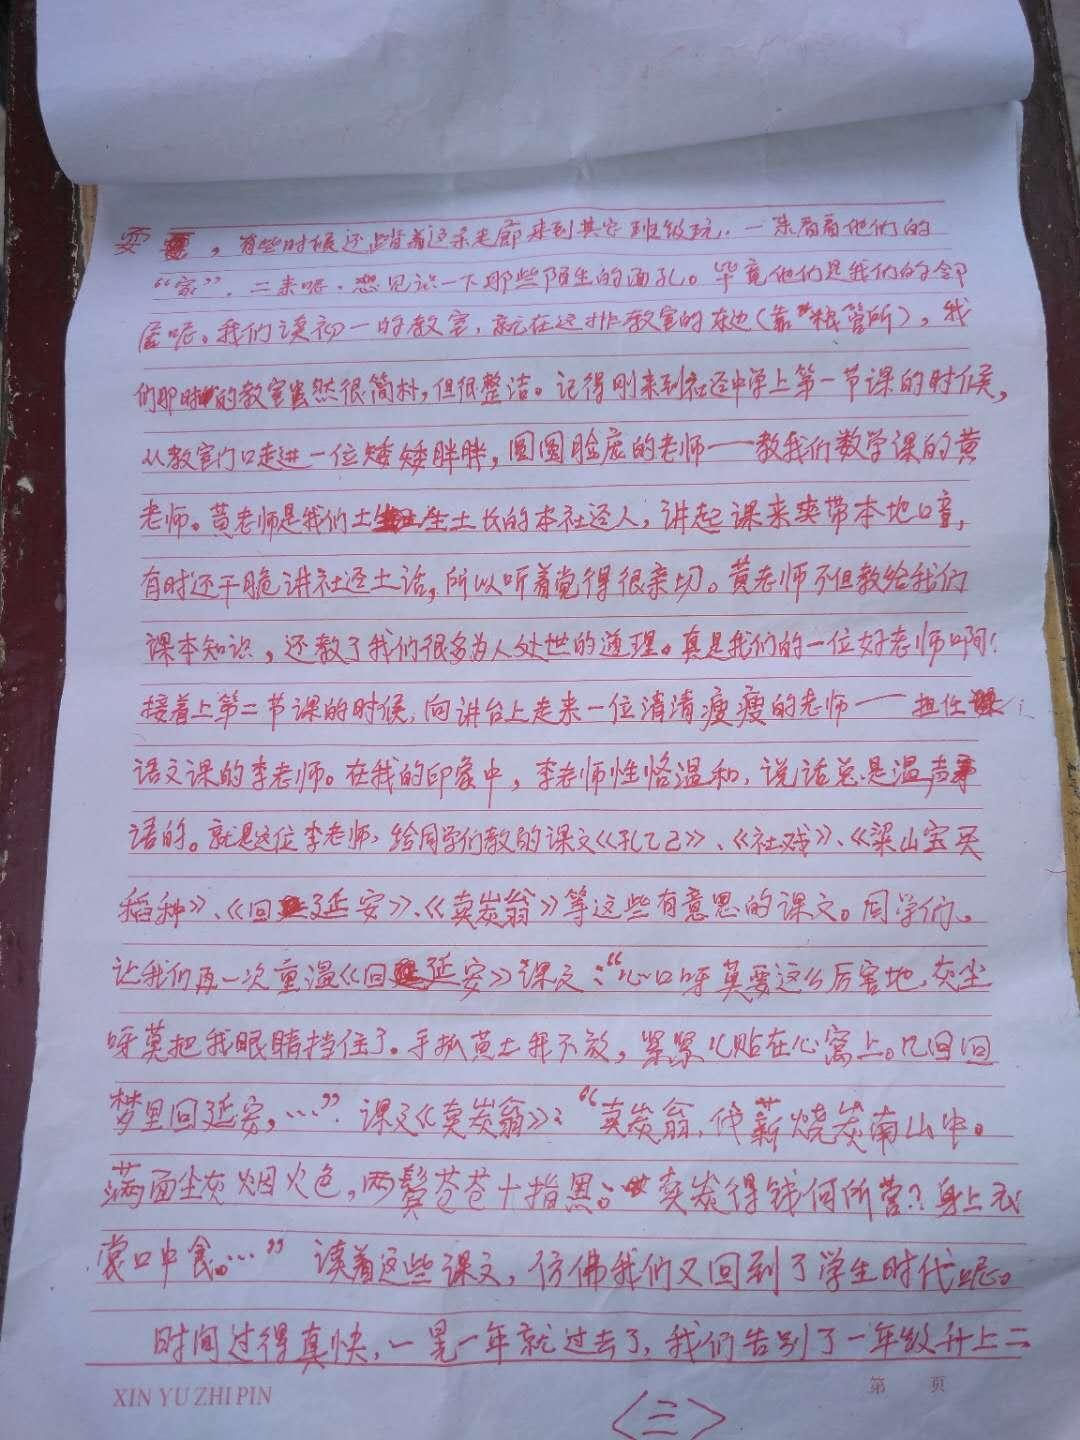 耍，有些时候还沿着这条走廊来到其它班级玩，一来看看他们的
“家”，二来呢，想见识一下那些陌生的面孔。毕竟他们是我们的邻
居呢。我们读初一的教室，就在这排教室的东边（靠“粮管所），我
们那时的教室虽然很简朴，但很整洁。记得刚来到社迳中学上第一节课的时候，
从教室门口走进一位矮矮胖胖，圆圆脸庞的老师——教我们数学课的黄
老师。黄老师是我们土生土长的本社迳人，讲起课来夹带本地口音，
有时还干脆讲社迳土话，所以听着觉得很亲切。黄老师不但教给我们
课本知识，还教了我们很多为人处世的道理。真是我们的一位好老师啊！
接着上第二节课的时候，向讲台上走来一位清清瘦瘦的老师——担任
语文课的李老师。在我的印象中，李老师性恪温和，说话总是温声
语的。就是这位李老师，给同学们教的课文《孔乙己》、《社戏》、《梁山宝买
稻种》、《回延安》、《卖炭翁》等这些有意思的课文。同学们、
让我们再一次重温《回延安》课文：“心口呀莫要这么厉害地，灰尘
呀莫把我眼睛挡住了。手抓黄土我不放，紧紧儿贴在心窝上。几回回
梦里回延安，…”课文《卖炭翁》：“卖炭翁，伐薪烧炭南山中。
满面尘灰烟火色，两鬓苍苍十指黑。卖炭得钱何所营？身上衣
裳口中食。…”读着这些课文，仿佛我们又回到了学生时代呢。
时间过得真快，一晃一年就过去了，我们告别了一年级升上二
XIN YU ZHI PIN 第 页
〈三〉